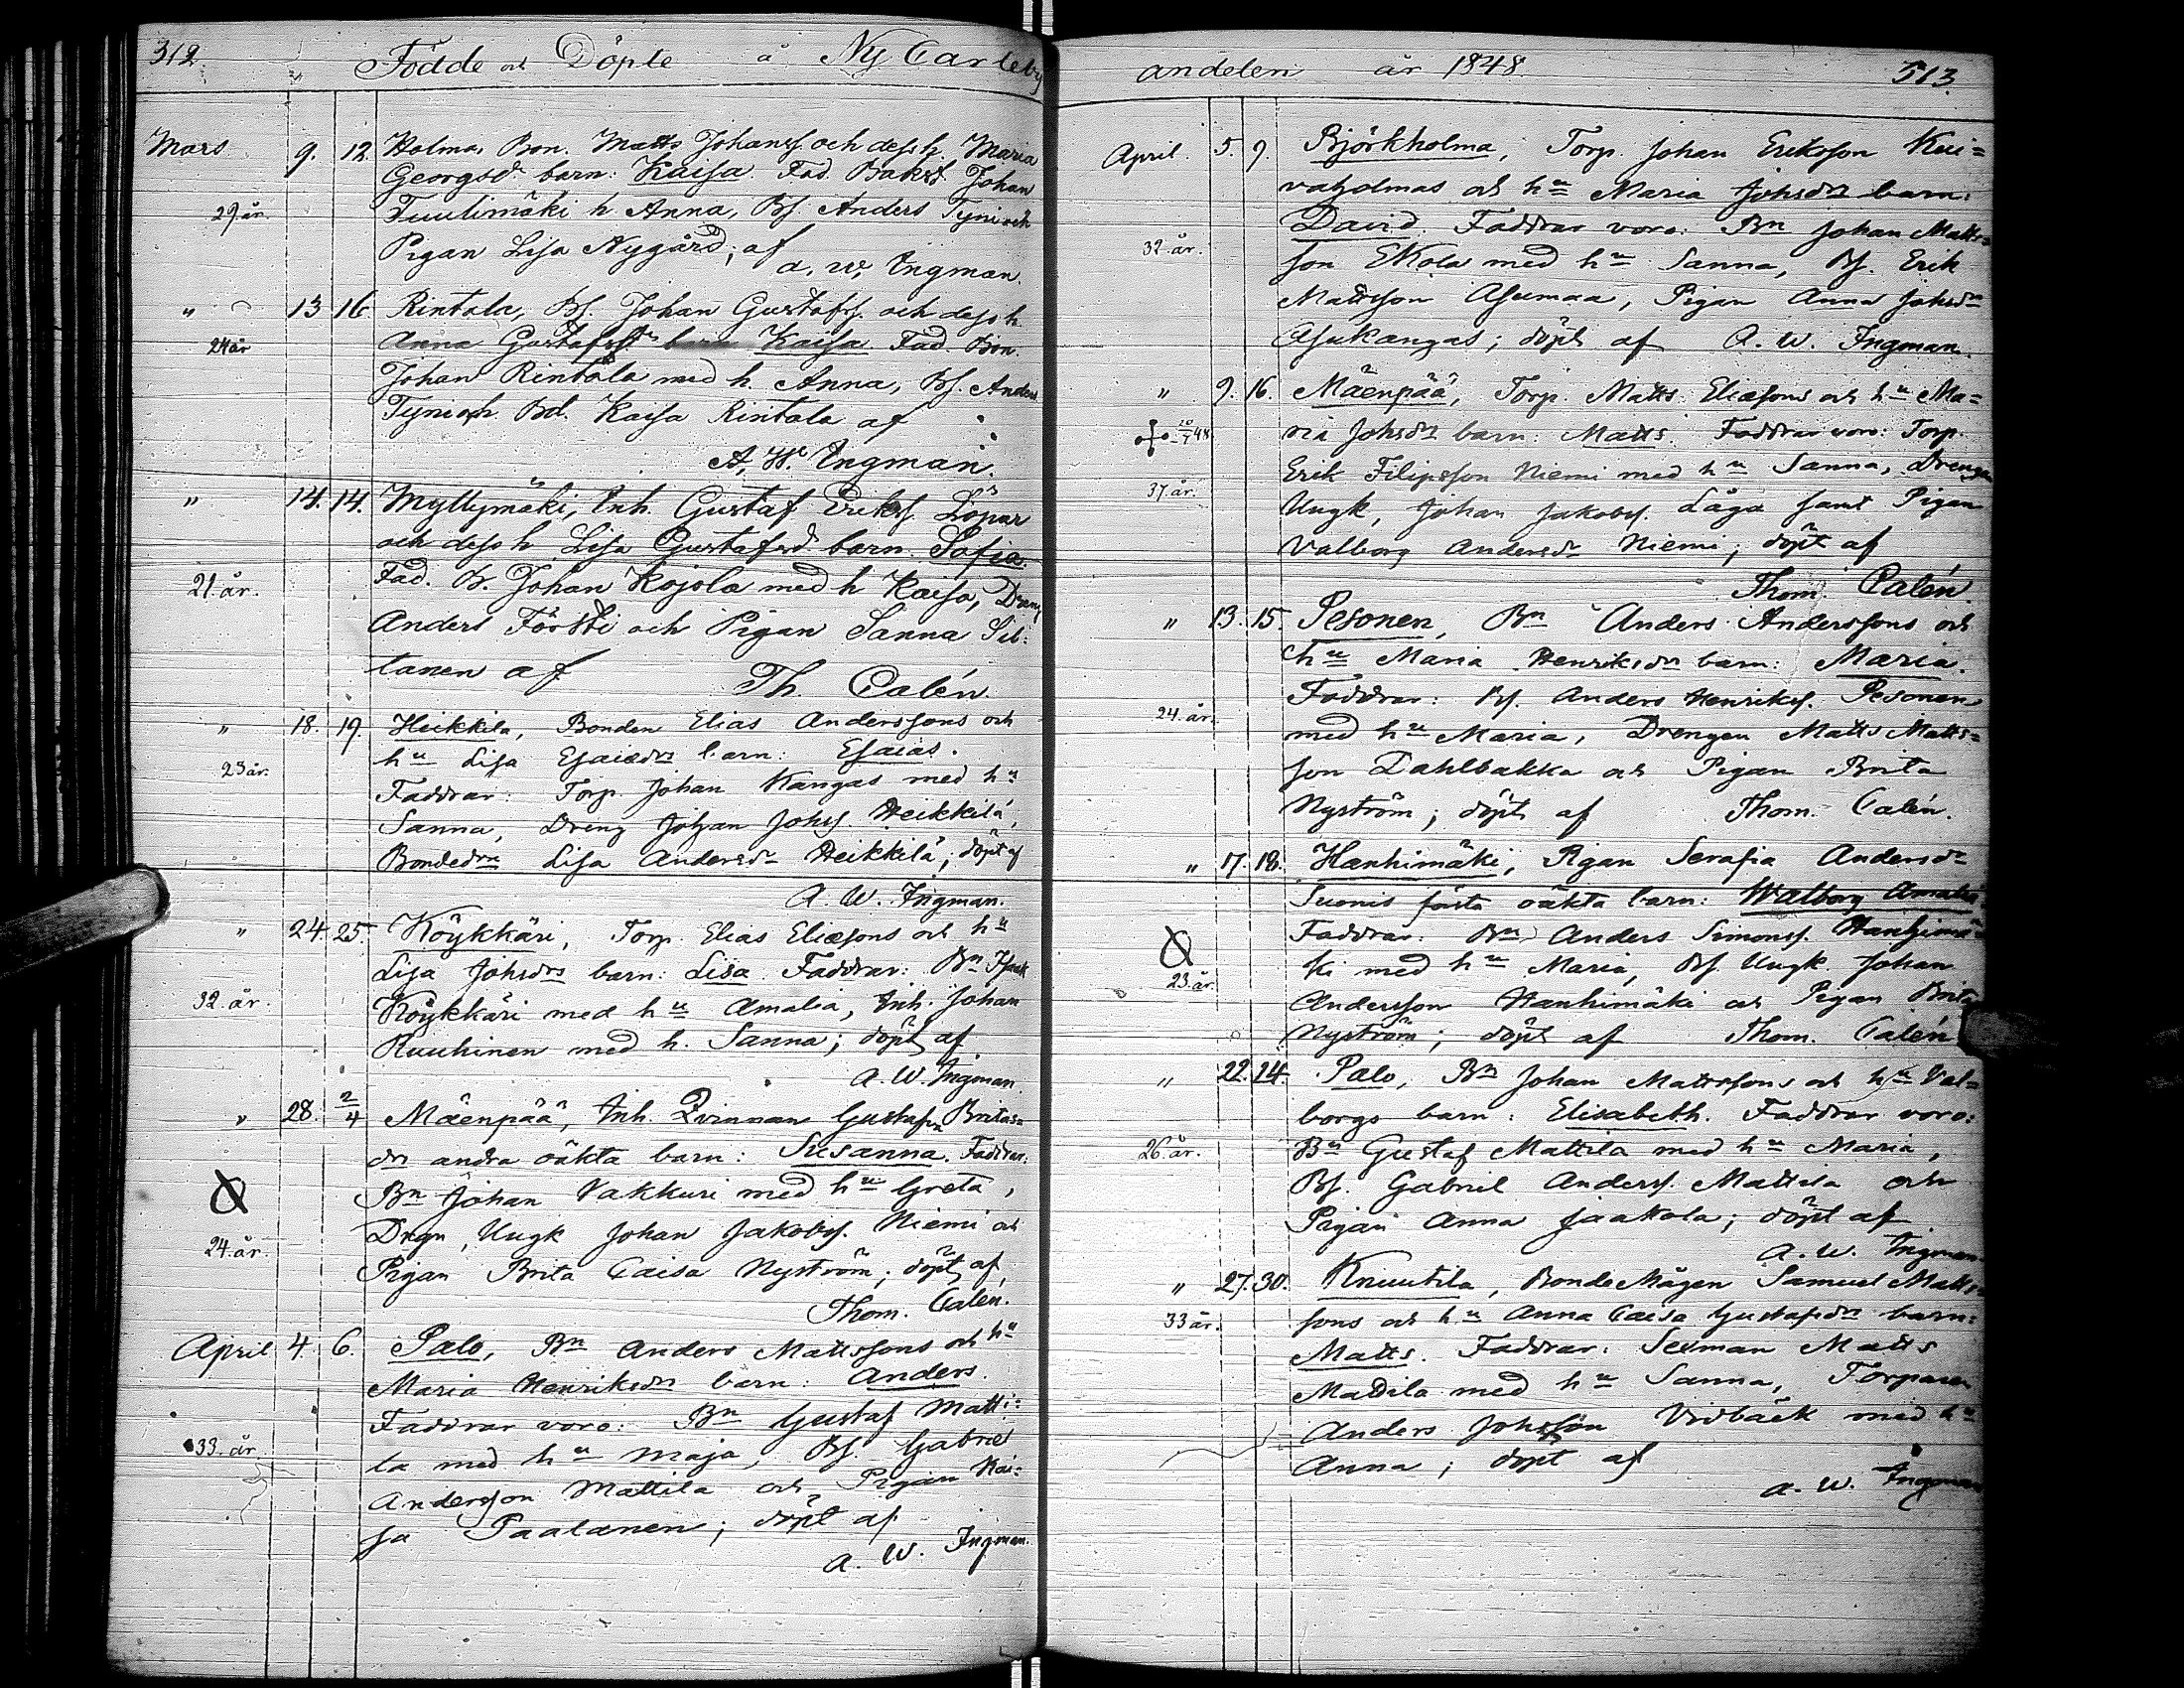 312. Födde och Döpte å Ny Carleby
Mars 9. 12 Holma, Bon. Matts Johanss. och dess h. Maria
Georgsdr barn: Kaisa Fad. Johan
29 år. Tuulimäki h Anna, Bs. Anders Tyni och
Pigan Lisa Nygård; af
a, w, Ingman.
" 13 16 Rintala, Bs. Johan Gustafs. och dess h.
24 år Anna Gustafsdr barn Kaisa Fad. Bon.
Johan Rintala med h. Anna, Bs. Anders
Tyni och Bd. Kaisa Rintala af
A, W. Ingman.
" 14. 14. Myllymäki, Inh. Gustaf Eriks. Löpar
och dess h Lisa Gustafsd barn Sofia.
21. år. Fad. B. Johan Kojola med h Kaisa, Dreng
Anders Förtti och Pigan Sanna Sil:
tanen af Th. Calén
" 18. 19. Heikkila, Bonden Elias Anderssons och
hu Lisa Esaiædr barn: Esaias.
23 år. Faddrar: Torp. Johan Kangas med hu
Sanna, Dreng Johan Johs. Heikkilä,
Bondedrn Lisa Andersdr Heikkilä; döpt af
A. W. Ingman.
" 24. 25. Köykkäri, Torp. Elias Eliæsons och hu
Lisa Johsdrs barn: Lisa. Faddrar: Bn Isaak
32. år. Köykkäri med hu Amalia, Inh. Johan
Ruuhinen med h. Sanna; döpt af
A. W. Ingman
" 28. 2/4 Mäenpää, Inh. Qvinnan Gustafva Britas=
drs andra oäkta barn: Susanna. Faddrar:
Bn Johan Vakkuri med hu Greta,
Drgn, Ungk Johan Jakobs. Niemi och
24. år. Pigan Brita Caisa Nyström; döpt af,
Thom. Calén.
April 4. 6. Palo, Bn Anders Mattssons och hu
Maria Henriksdrs barn: Anders.
Faddrar voro: Bn Gustaf Matti:
33. år. la med hu Maja, Bs. Gabriel
Andersson Mattila och Pigan Kai:
sa Paalanen; döpt af
A. W. Ingman.
andelen år 1848. 313.
April. 5. 9. Björkholma, Torp. Johan Eriksson Kui=
vaholmas och hu Maria Johsdrs barn:
David. Faddrar voro: Bn Johan Matts=
32. år. son Ekola med hu Sanna, Bs. Erik
Mattsson Asumaa, Pigan Anna Johsdr
Asukangas; döpt af A. W. Ingman.
" 9. 16. Mäenpää, Torp. Matts Eliæsons och hu Ma=
ria Johsdrs barn: Matts. Faddrar voro: Torp.
Erik Filipsson Niemi med hu Sanna, Drengen
37. år. Ungk, Johan Jakobs. Låga samt Pigan
Valborg Andersdr Niemi; döpt af
Thom. Calén.
" 13. 15. Pesonen, Bn Anders Anderssons och
hu Maria Henriksdrs barn: Maria.
Faddrar: Bs. Anders Henriks. Pesonen
24. år. med hu Maria, Drengen Matts Matts=
son Dahlbakka och Pigan Brita
Nyström; döpt af Thom. Calén.
" 17. 18. Hanhimäki, Pigan Serafia Andersdr
Suonis första oäkta barn: Walborg Amalia
Faddrar: Bn Anders Simons. Hanhimä=
ki med hu Maria, Bs. Ungk. Johan
23. år. Andersson Hanhimäki och Pigan Brita
Nyström; döpt af Thom. Calén
" 22. 24. Palo, Bn Johan Mattssons och hu Val=
borgs barn: Elisabeth. Faddrar voro:
26. år. Bn Gustaf Mattila med hu Maria,
Bs. Gabriel Anders. Mattila och
Pigan Anna Jaakola; döpt af
A. W. Ingman
" 27. 30. Knuutila, Bonde Mågen Samuel Matts=
33 år. sons och hu Anna Caisa Gustafsdrs barn:
Matts. Faddrar: Sexman Matts
Mattila med hu Sanna, Torparen
Anders Johsson Vidbäck med hu
Anna; döpt af
A. W. Ingman